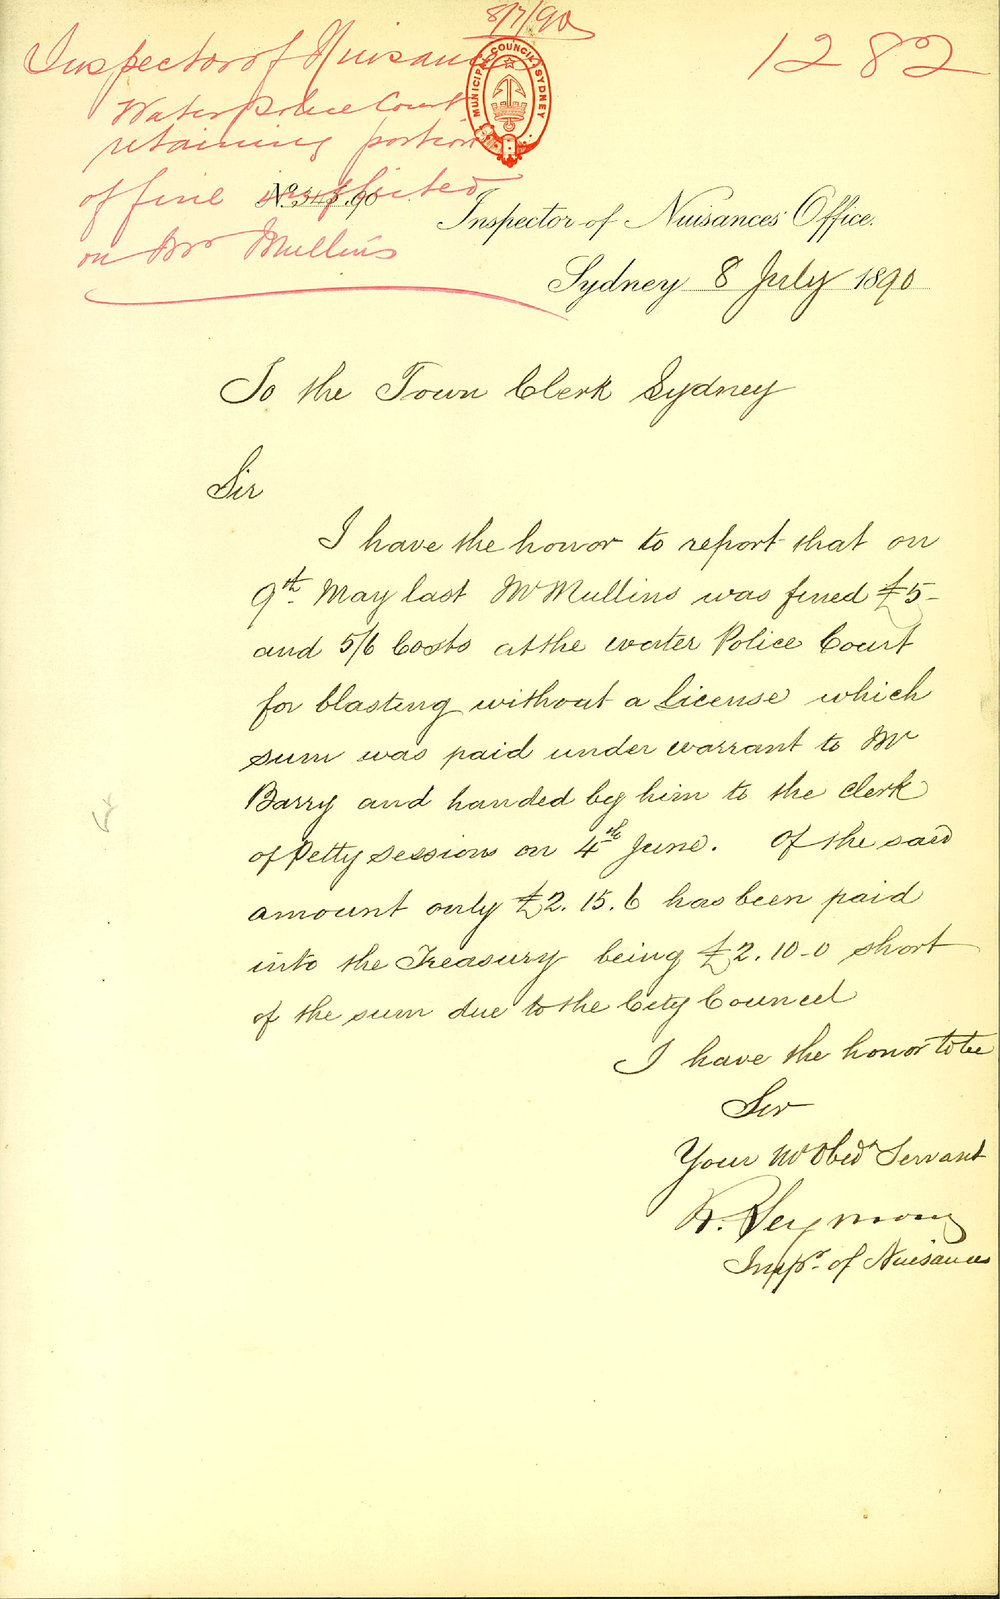 8/7/90
1282
Inspector of Nuisances
Water Police Court
retaining portion
of fine inflicted
on Mr Mullins
MUNICIPAL COUNCIL SYDNEY
No. 343.90
Inspector of Nuisances' Office.
Sydney 8 July 1890
To the Town Clerk Sydney
Sir
I have the honor to report that on
9th May last Mr Mullins was fined £5-
and 5/6 Costs at the water Police Court
for blasting without a License which
sum was paid under warrant to Mr
Barry and handed by him to the clerk
of Petty Sessions on 4th June. Of the said
amount only £2.15.6 has been paid
into the Treasury being £2.10-0 short
of the sum due to the City Council
I have the honor to be
Sir
Your Mo Obedt Servant
R. Seymour
Inspr. of Nuisances